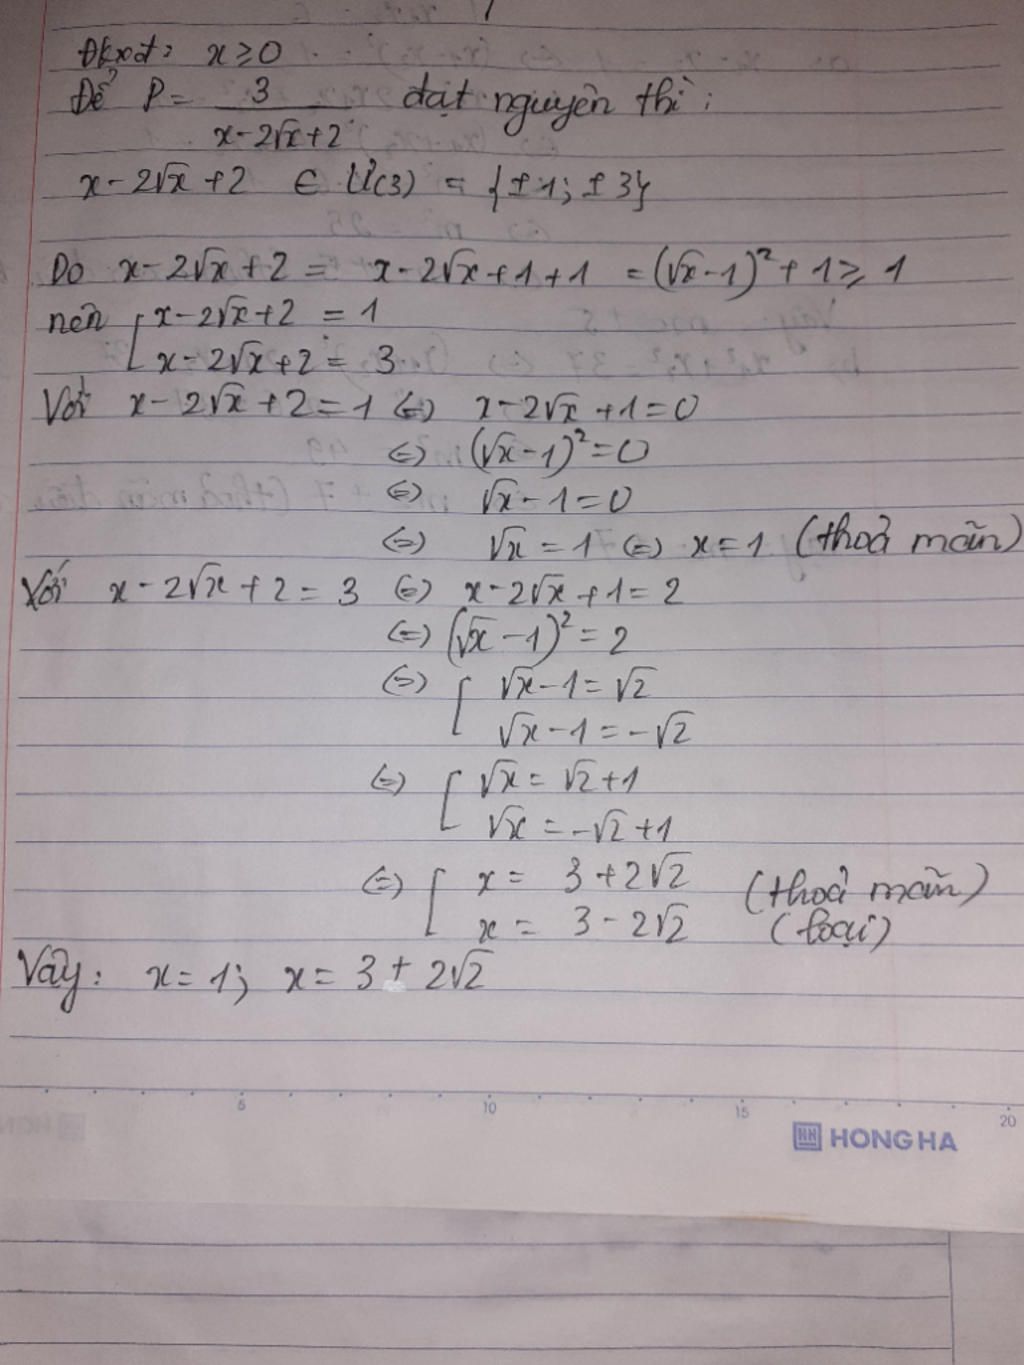 Đkxđ: x ≥ 0
Để P = 3 / (x - 2√x + 2) đạt nguyên thì:
x - 2√x + 2 ∈ Ư(3) = {±1; ±3}
Do x - 2√x + 2 = x - 2√x + 1 + 1 = (√x - 1)² + 1 ≥ 1
nên [ x - 2√x + 2 = 1
x - 2√x + 2 = 3
Với x - 2√x + 2 = 1 <=> x - 2√x + 1 = 0
<=> (√x - 1)² = 0
<=> √x - 1 = 0
<=> √x = 1 <=> x = 1 (thoả mãn)
Với x - 2√x + 2 = 3 <=> x - 2√x + 1 = 2
<=> (√x - 1)² = 2
<=> [ √x - 1 = √2
√x - 1 = -√2
<=> [ √x = √2 + 1
√x = -√2 + 1
<=> [ x = 3 + 2√2 (thoả mãn)
x = 3 - 2√2 (loại)
Vậy: x = 1; x = 3 + 2√2
5 10 15 20
HN HONG HA